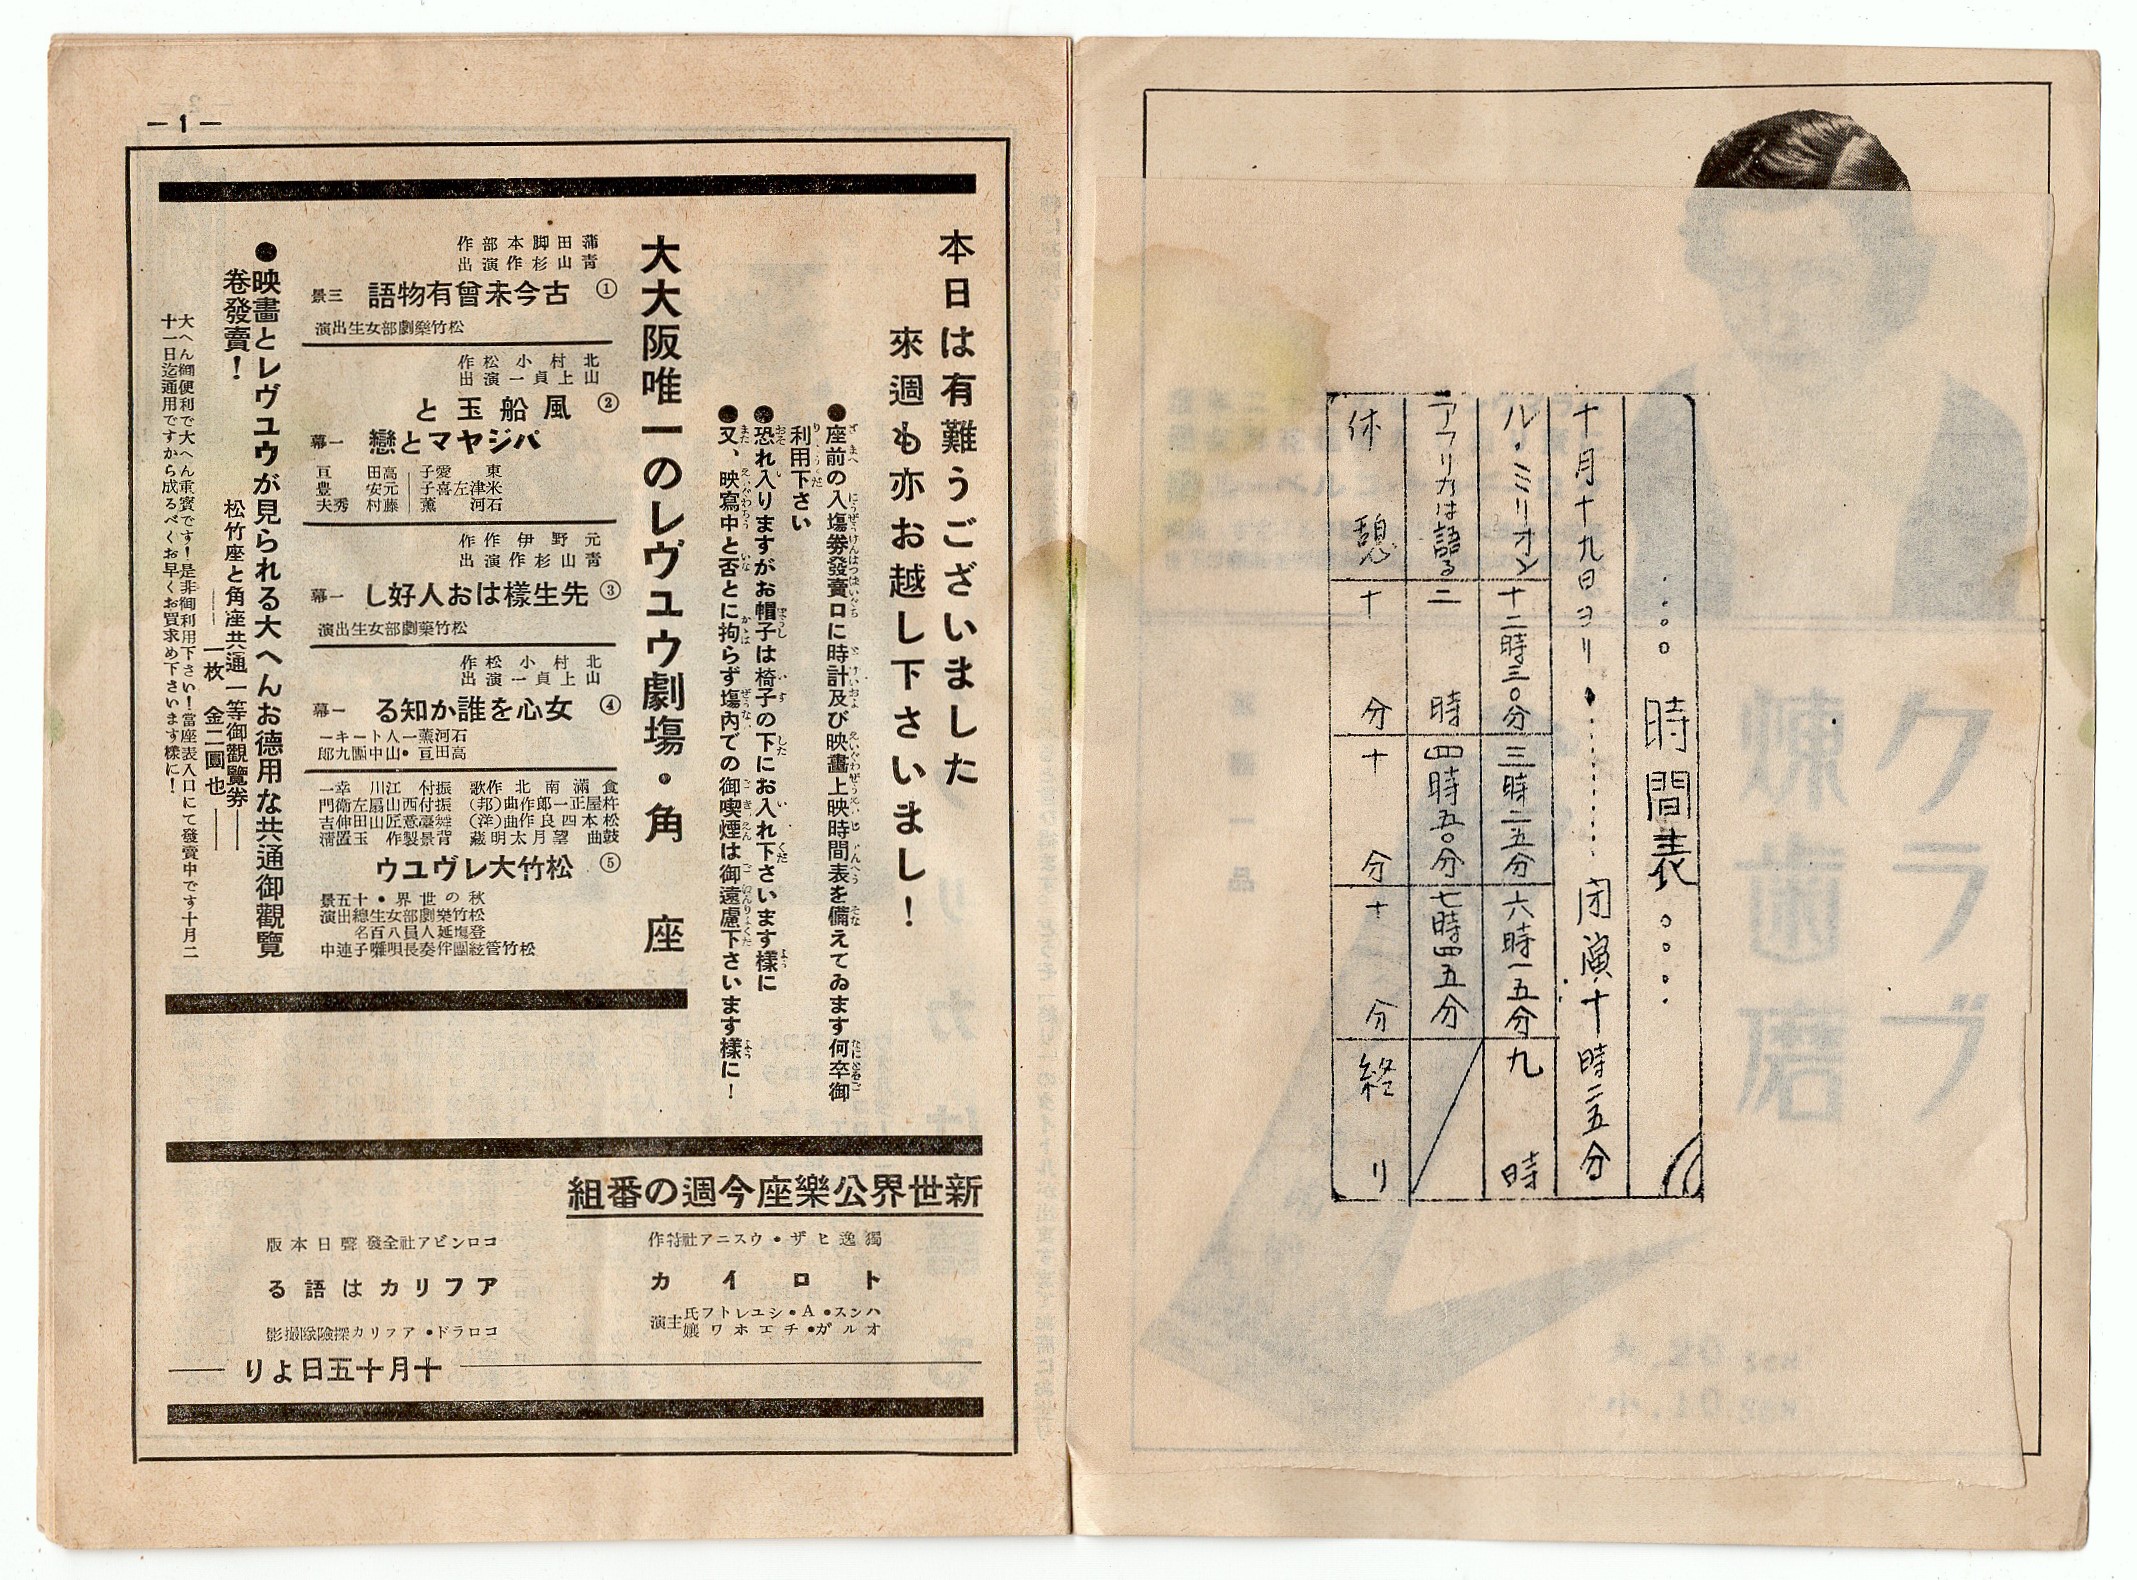 時間表
十月十九日ヨリ 開演十時二五分
ル・ミリオン 十二時三〇分 三時二五分 六時一五分 九時
アフリカは語る 二時 四時五〇分 七時四五分
休憩 十分 十分 十分 終り
クラブ
煉歯磨
— 1 —
本日は有難うございました
來週も亦お越し下さいまし！
●座前の入場券發賣口に時計及び映畫上映時間表を備えてゐます何卒御
利用下さい
●恐れ入りますがお帽子は椅子の下にお入れ下さいます樣に
●又、映寫中と否とに拘らず場内での御喫煙は御遠慮下さいます樣に！
大大阪唯一のレヴユウ劇場・角座
蒲田脚本部作
青山杉作演出
①古今未曾有物語 三景
松竹樂劇部女生出演
北村小松作
山上貞一演出
②風船玉と
パジヤマと戀 一幕
東愛子 高田亘
米津左喜子 元安豊
石河薫 藤村秀夫
元野伊作作
青山杉作演出
③先生樣はお人好し 一幕
松竹樂劇部女生出演
北村小松作
山上貞一演出
④女心を誰か知る 一幕
石河薫一人トーキー
高田亘・山中團九郎
食滿南北作歌 振付江川幸一
杵屋正一郎作曲(邦) 振付西山扇左衛門
松本四良作曲(洋) 舞臺意匠山田伸吉
鼓曲望月太明藏 背景製作玉置清
⑤松竹大レヴユウ
秋の世界・十五景
松竹樂劇部女生總出演
登場延人員八百名
松竹管絃團伴奏長唄囃子連中
●映畫とレヴユウが見られる大へんお德用な共通御觀覽
券發賣！
松竹座と角座共通一等御觀覽券——
——一枚 金二圓也——
大へん御便利で大へん重寳です！是非御利用下さい！當座表入口にて發賣中です十月二
十一日迄通用ですから成るべくお早くお買求め下さいます樣に！
新世界公樂座今週の番組
獨逸ヒザ・ウスニア社特作
トロイカ
ハンス・A・シユレトフ氏
オルガ・チエホワ孃
主演
コロンビア社全發聲日本版
アフリカは語る
コロラド・アフリカ探險隊撮影
十月十五日より